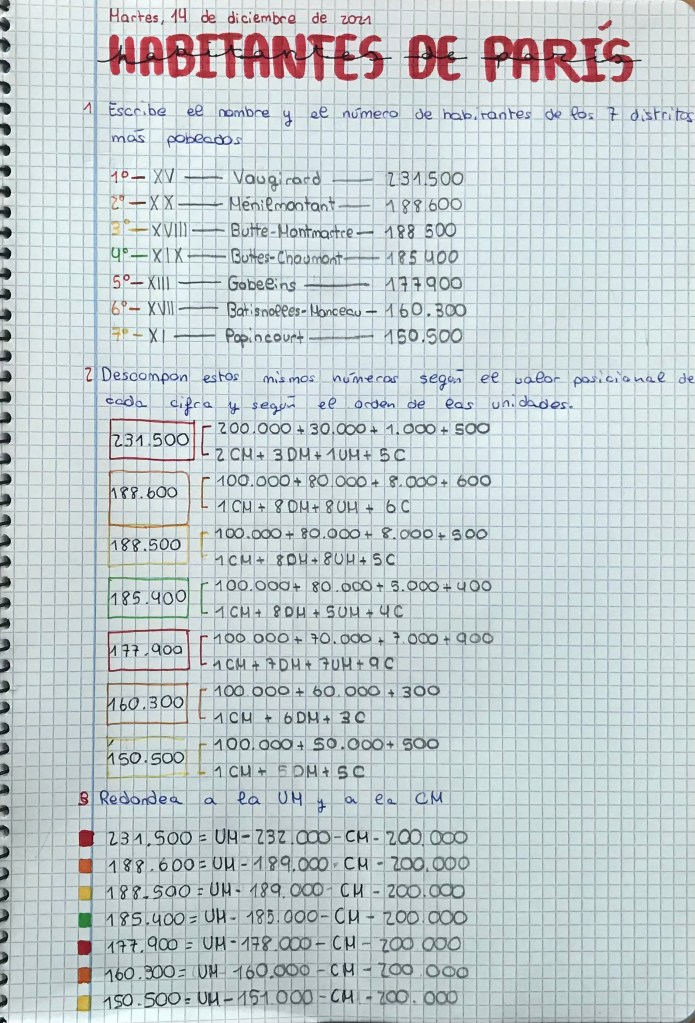 Martes, 14 de diciembre de 2021
HABITANTES DE PARÍS
habitantes de parís
1 Escribe el nombre y el número de habitantes de los 7 distritos
más poblados
1º — XV — Vaugirard — 231.500
2º — XX — Ménilmontant — 188600
3º — XVIII — Butte-Montmartre — 188 500
4º — XIX — Buttes-Chaumont — 185400
5º — XIII — Gobelins — 177900
6º — XVII — Batisnolles-Monceau — 160.300
7º — XI — Popincourt — 150.500
2 Descompon estos mismos números según el valor posicional de
cada cifra y según el orden de las unidades.
231.500 200.000 + 30.000 + 1.000 + 500
2 CM + 3DM + 1UM + 5C
188.600 100.000 + 80.000 + 8.000 + 600
1 CM + 8DM + 8UM + 6C
188.500 100.000 + 80.000 + 8.000 + 500
1CM + 8DM + 8UM + 5C
185.400 100.000 + 80.000 + 5.000 + 400
1CM + 8DM + 5UM + 4C
177.900 100.000 + 70.000 + 7.000 + 900
1CM + 7DM + 7UM + 9C
160.300 100.000 + 60.000 + 300
1CM + 6DM + 3C
150.500 100.000 + 50.000 + 500
1 CM + 5DM + 5C
3 Redondea a la UM y a la CM
231.500 = UM - 232.000 - CM - 200.000
188.600 = UM - 189.000 - CM - 200.000
188.500 = UM - 189.000 - CM - 200.000
185.400 = UM - 185.000 - CM - 200.000
177.900 = UM - 178.000 - CM - 200 000
160.300 = UM - 160.000 - CM - 200.000
150.500 = UM - 151.000 - CM - 200.000